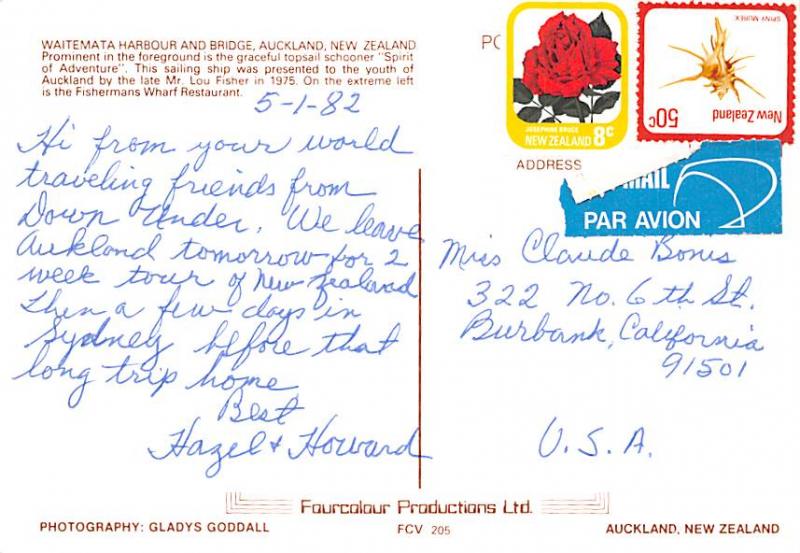 WAITEMATA HARBOUR AND BRIDGE, AUCKLAND, NEW ZEALAND
Prominent in the foreground is the graceful topsail schooner "Spirit
of Adventure". This sailing ship was presented to the youth of
Auckland by the late Mr. Lou Fisher in 1975. On the extreme left
is the Fishermans Wharf Restaurant.
5-1-82
Hi from your world
traveling friends from
Down Under. We leave
Aukland tomorrow for 2
week tour of New Zealand
then a few days in
Sydney before that
long trip home
Best
Hazel & Howard
PO
JOSEPHINE BRUCE
NEW ZEALAND 8c
SPINY MUREX
New Zealand
50c
ADDRESS
MAIL
PAR AVION
Miss Claude Bonis
322 No. 6th St.
Burbank, California
91501
U.S.A.
Fourcolour Productions Ltd.
PHOTOGRAPHY: GLADYS GODDALL
FCV 205
AUCKLAND, NEW ZEALAND